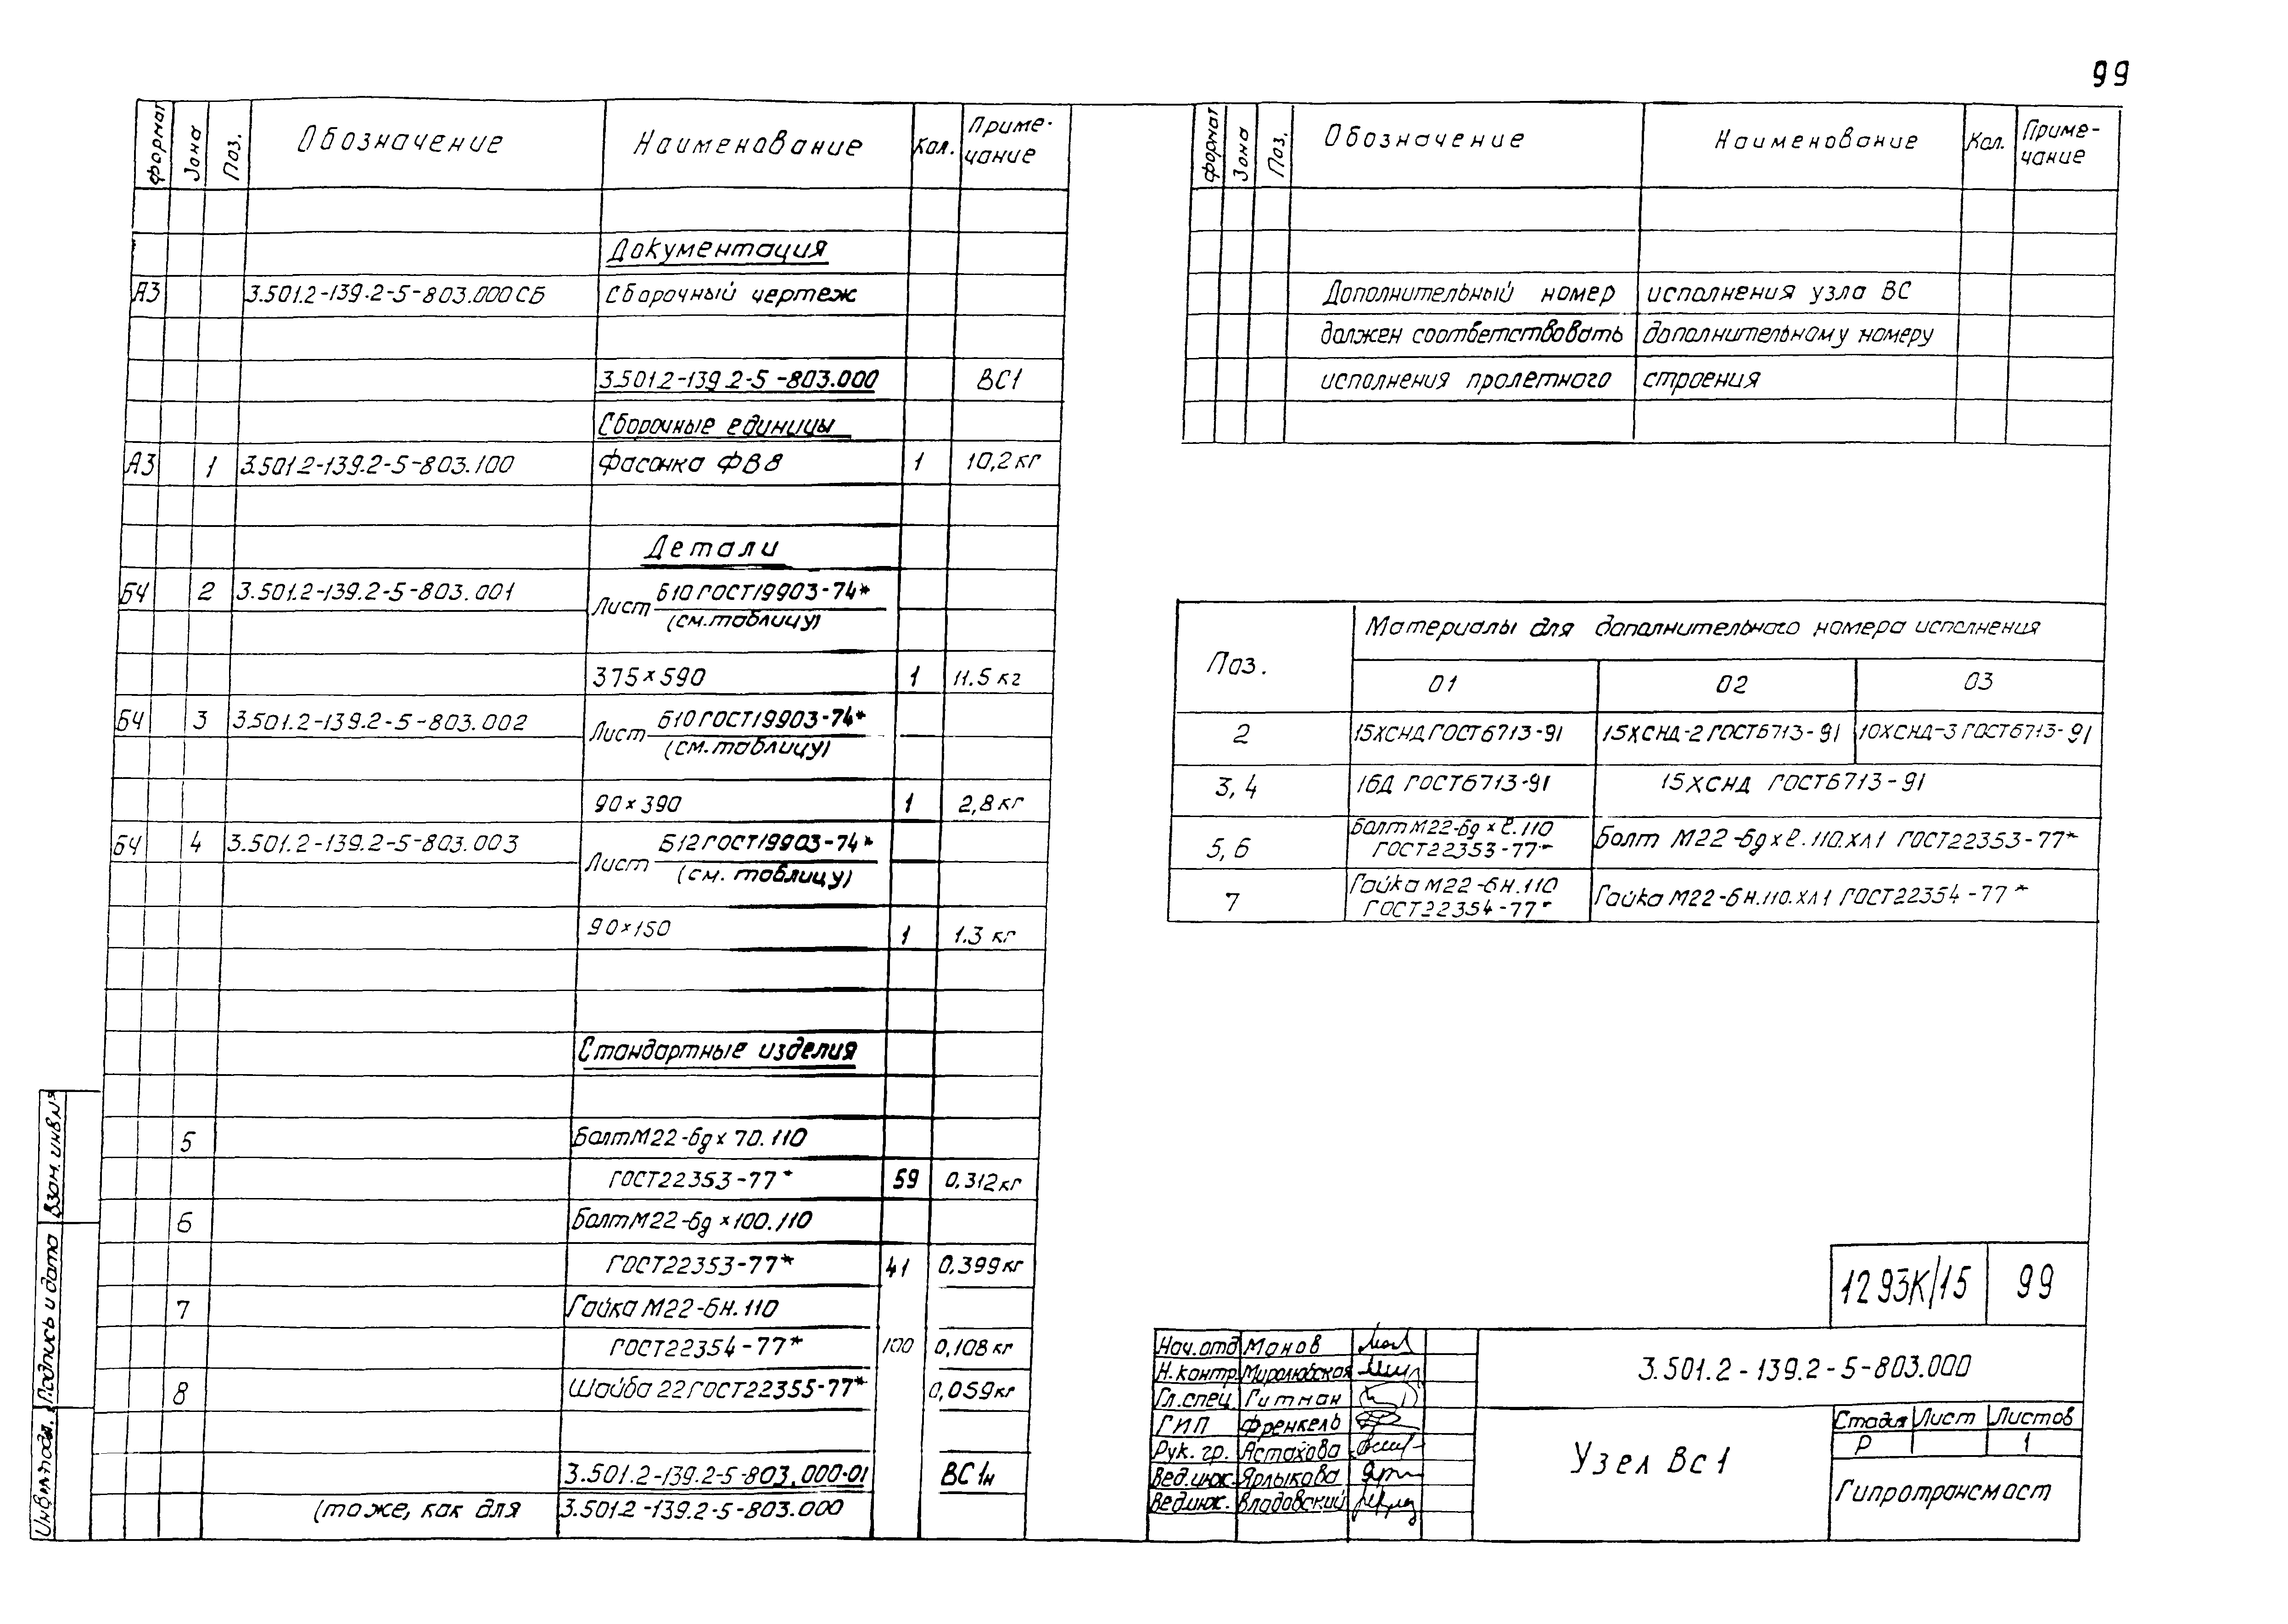 99
Формат Зона Поз. Обозначение Наименование Кол. Приме-
чание
Документация
А3 3.501.2-139.2-5-803.000СБ Сборочный чертеж
3.501.2-139.2-5-803.000 ВС1
Сборочные единицы
А3 1 3.501.2-139.2-5-803.100 Фасонка ФВ8 1 10,2кг
Детали
БЧ 2 3.501.2-139.2-5-803.001 Лист Б10 ГОСТ19903-74*
(см.таблицу)
375×590 1 11.5 кг
БЧ 3 3.501.2-139.2-5-803.002 Лист Б10 ГОСТ19903-74*
(см.таблицу)
90×390 1 2,8 кг
БЧ 4 3.501.2-139.2-5-803.003 Лист Б12 ГОСТ19903-74*
(см. таблицу)
90×150 1 1.3 кг
Стандартные изделия
5 Болт М22-6g×70.110
ГОСТ22353-77* 59 0,312кг
6 Болт М22-6g×100.110
ГОСТ22353-77* 41 0,399кг
7 Гайка М22-6Н.110
ГОСТ22354-77* 100 0,108кг
8 Шайба 22 ГОСТ22355-77* 0,059кг
3.501.2-139.2-5-803.000-01 ВС1н
(тоже, как для 3.501.2-139.2-5-803.000
Взам. инв.№
Подпись и дата
Инв.№подл.
Формат Зона Поз. Обозначение Наименование Кол. Приме-
чание
Дополнительный номер исполнения узла ВС
должен соответствовать дополнительному номеру
исполнения пролетного строения
Поз. Материалы для дополнительного номера исполнения
01 02 03
2 15ХСНД ГОСТ6713-91 15ХСНД-2 ГОСТ6713-91 10ХСНД-3 ГОСТ6713-91
3, 4 16Д ГОСТ6713-91 15ХСНД ГОСТ6713-91
5, 6 Болт М22-6g×ℓ.110
ГОСТ22353-77* Болт М22-6g×ℓ.110.ХЛ1 ГОСТ22353-77*
7 Гайка М22-6Н.110
ГОСТ22354-77* Гайка М22-6Н.110.ХЛ1 ГОСТ22354-77*
1293К/15 99
Нач.отд Монов
Н.контр. Миролюбская
Гл.спец. Гитман
ГИП Френкель
Рук. гр. Астахова
Вед.инж. Ярлыкова
Вед.инж. Владовский
3.501.2-139.2-5-803.000
Узел Вс1
Стадия Лист Листов
Р 1
Гипротрансмост